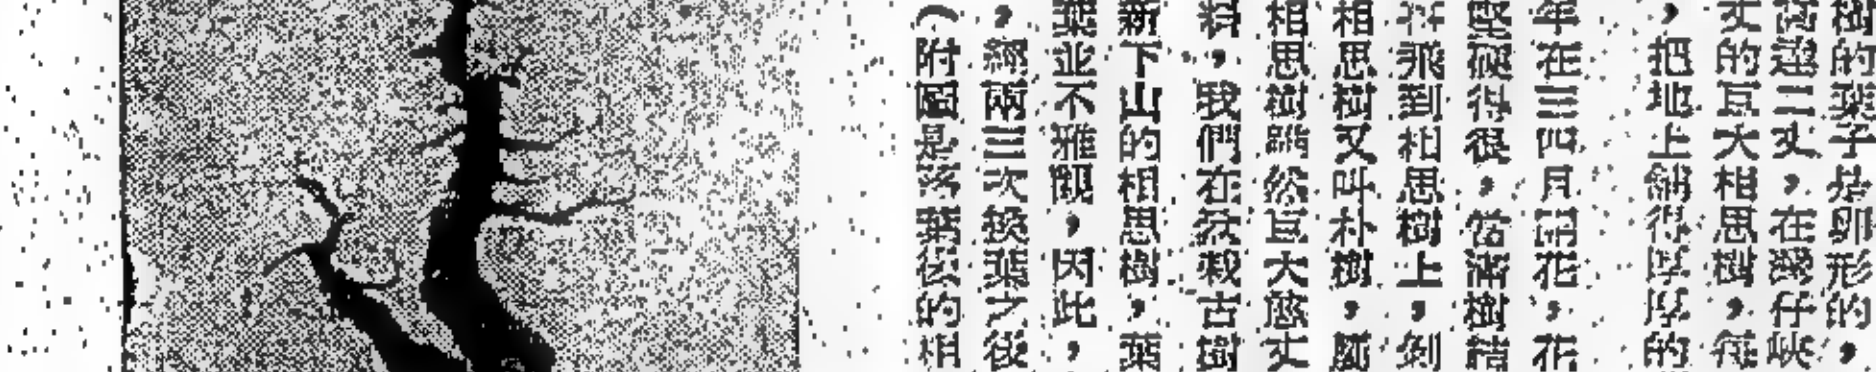 樹的葉子是卵形的，
高達二丈，在愛仔峽
丈的亘大相思樹，每
，把地上舖得厚厚的
年在三四月開花，花
堅硬得很，當滿樹結
飛到相思樹上，剝
相思樹又叫朴樹，
相思樹雖然亘大
料，我們在栽古樹
新下山的相思樹，葉
葉並不雅觀，因此，
，經兩三次換葉之後
）附圖是落葉後的相